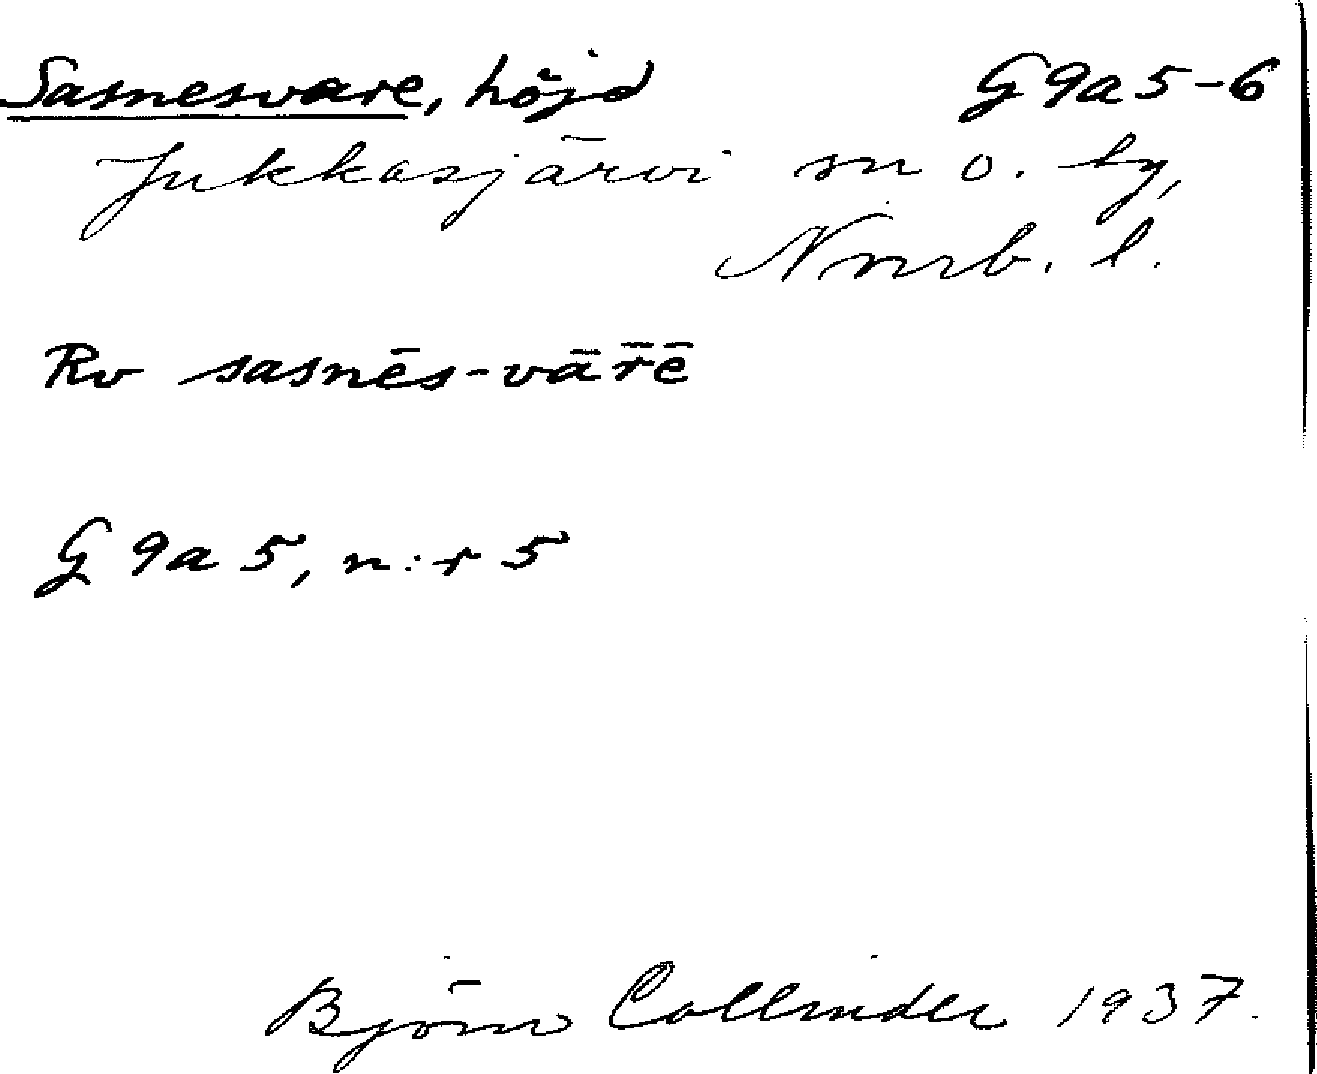 Sasnesvare, höjd G 9a 5-6
Jukkasjärvi sn o. by,
Norrb. l.
Rv sasnēs-vār̄ē
G 9a 5, n:r 5
Björn Collinder 1937.